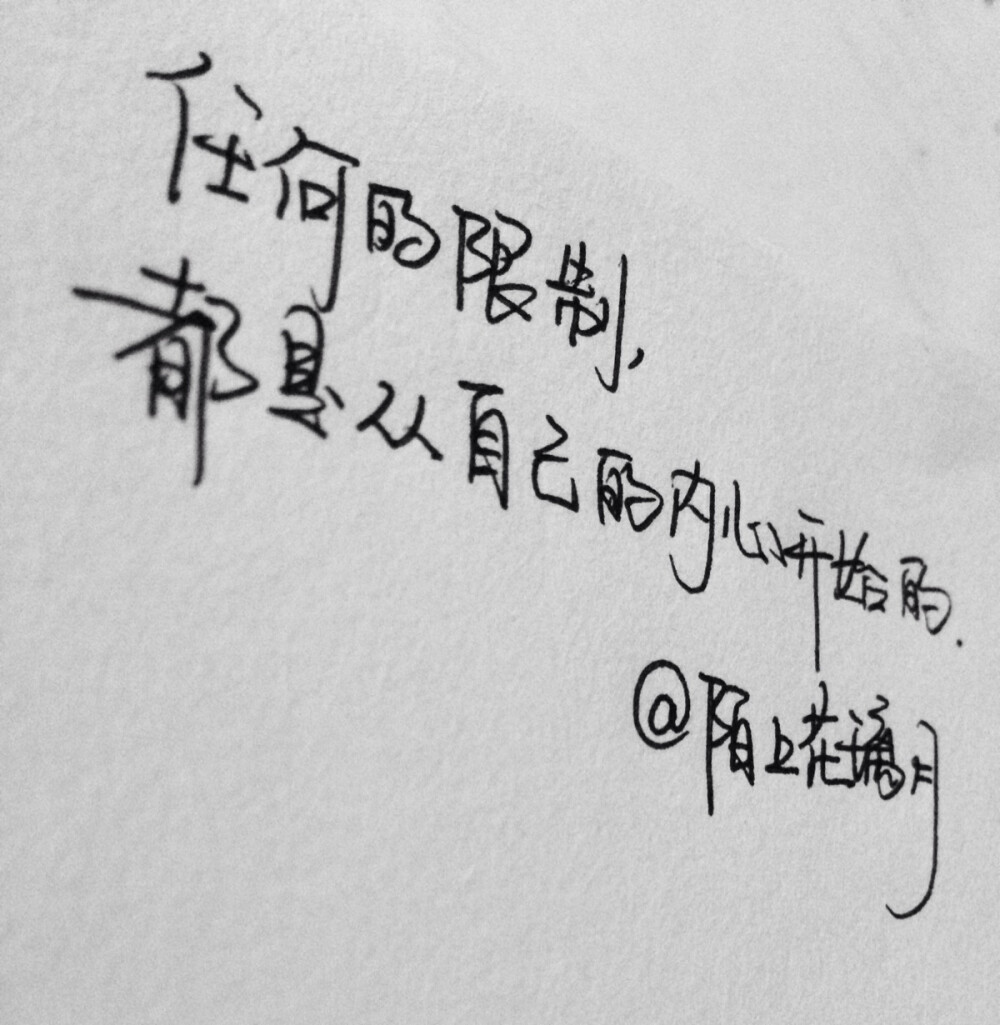 任何的限制,
都是从自己的内心开始的.
@陌上花漪月